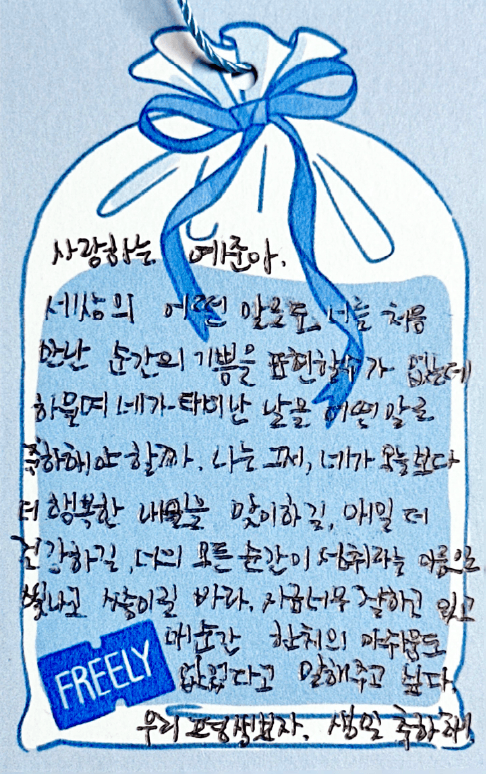 사랑하는 예준아.
세상의 어떤 말로도 너를 처음
만난 순간의 기쁨을 표현할수가 없는데
하물며 네가 태어난 날을 어떤 말로
축하해야 할까. 나는 그저, 네가 오늘보다
더 행복한 내일을 맞이하길, 매일 더
건강하길, 너의 모든 순간이 성취라는 이름으로
빛나고 상승이길 바라. 지금너무 잘하고 있고
매순간 한치의 아쉬움도
없었다고 말해주고 싶다.
우리 생일 축하해!
FREELY